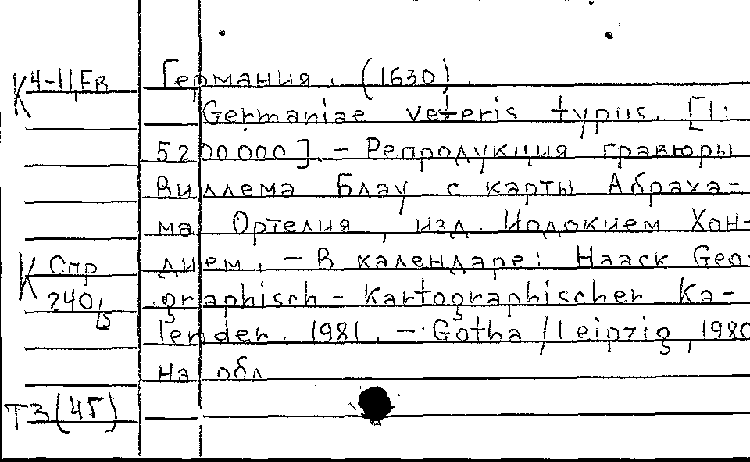 К 4-ЦЕв Германия. (1630)
Germaniae veteris typus. [1:
5200000]. – Репродукция гравюры
Виллема Блау с карты Абраха-
ма Ортелия, изд. Иодокием Хон-
дием. – В календаре: Haack Geo-
К Спр graphisch – Kartographischer Ka-
240/в lender. 1981. – Gotha/Leipzig, 1980
на обл
Т3(4Г)